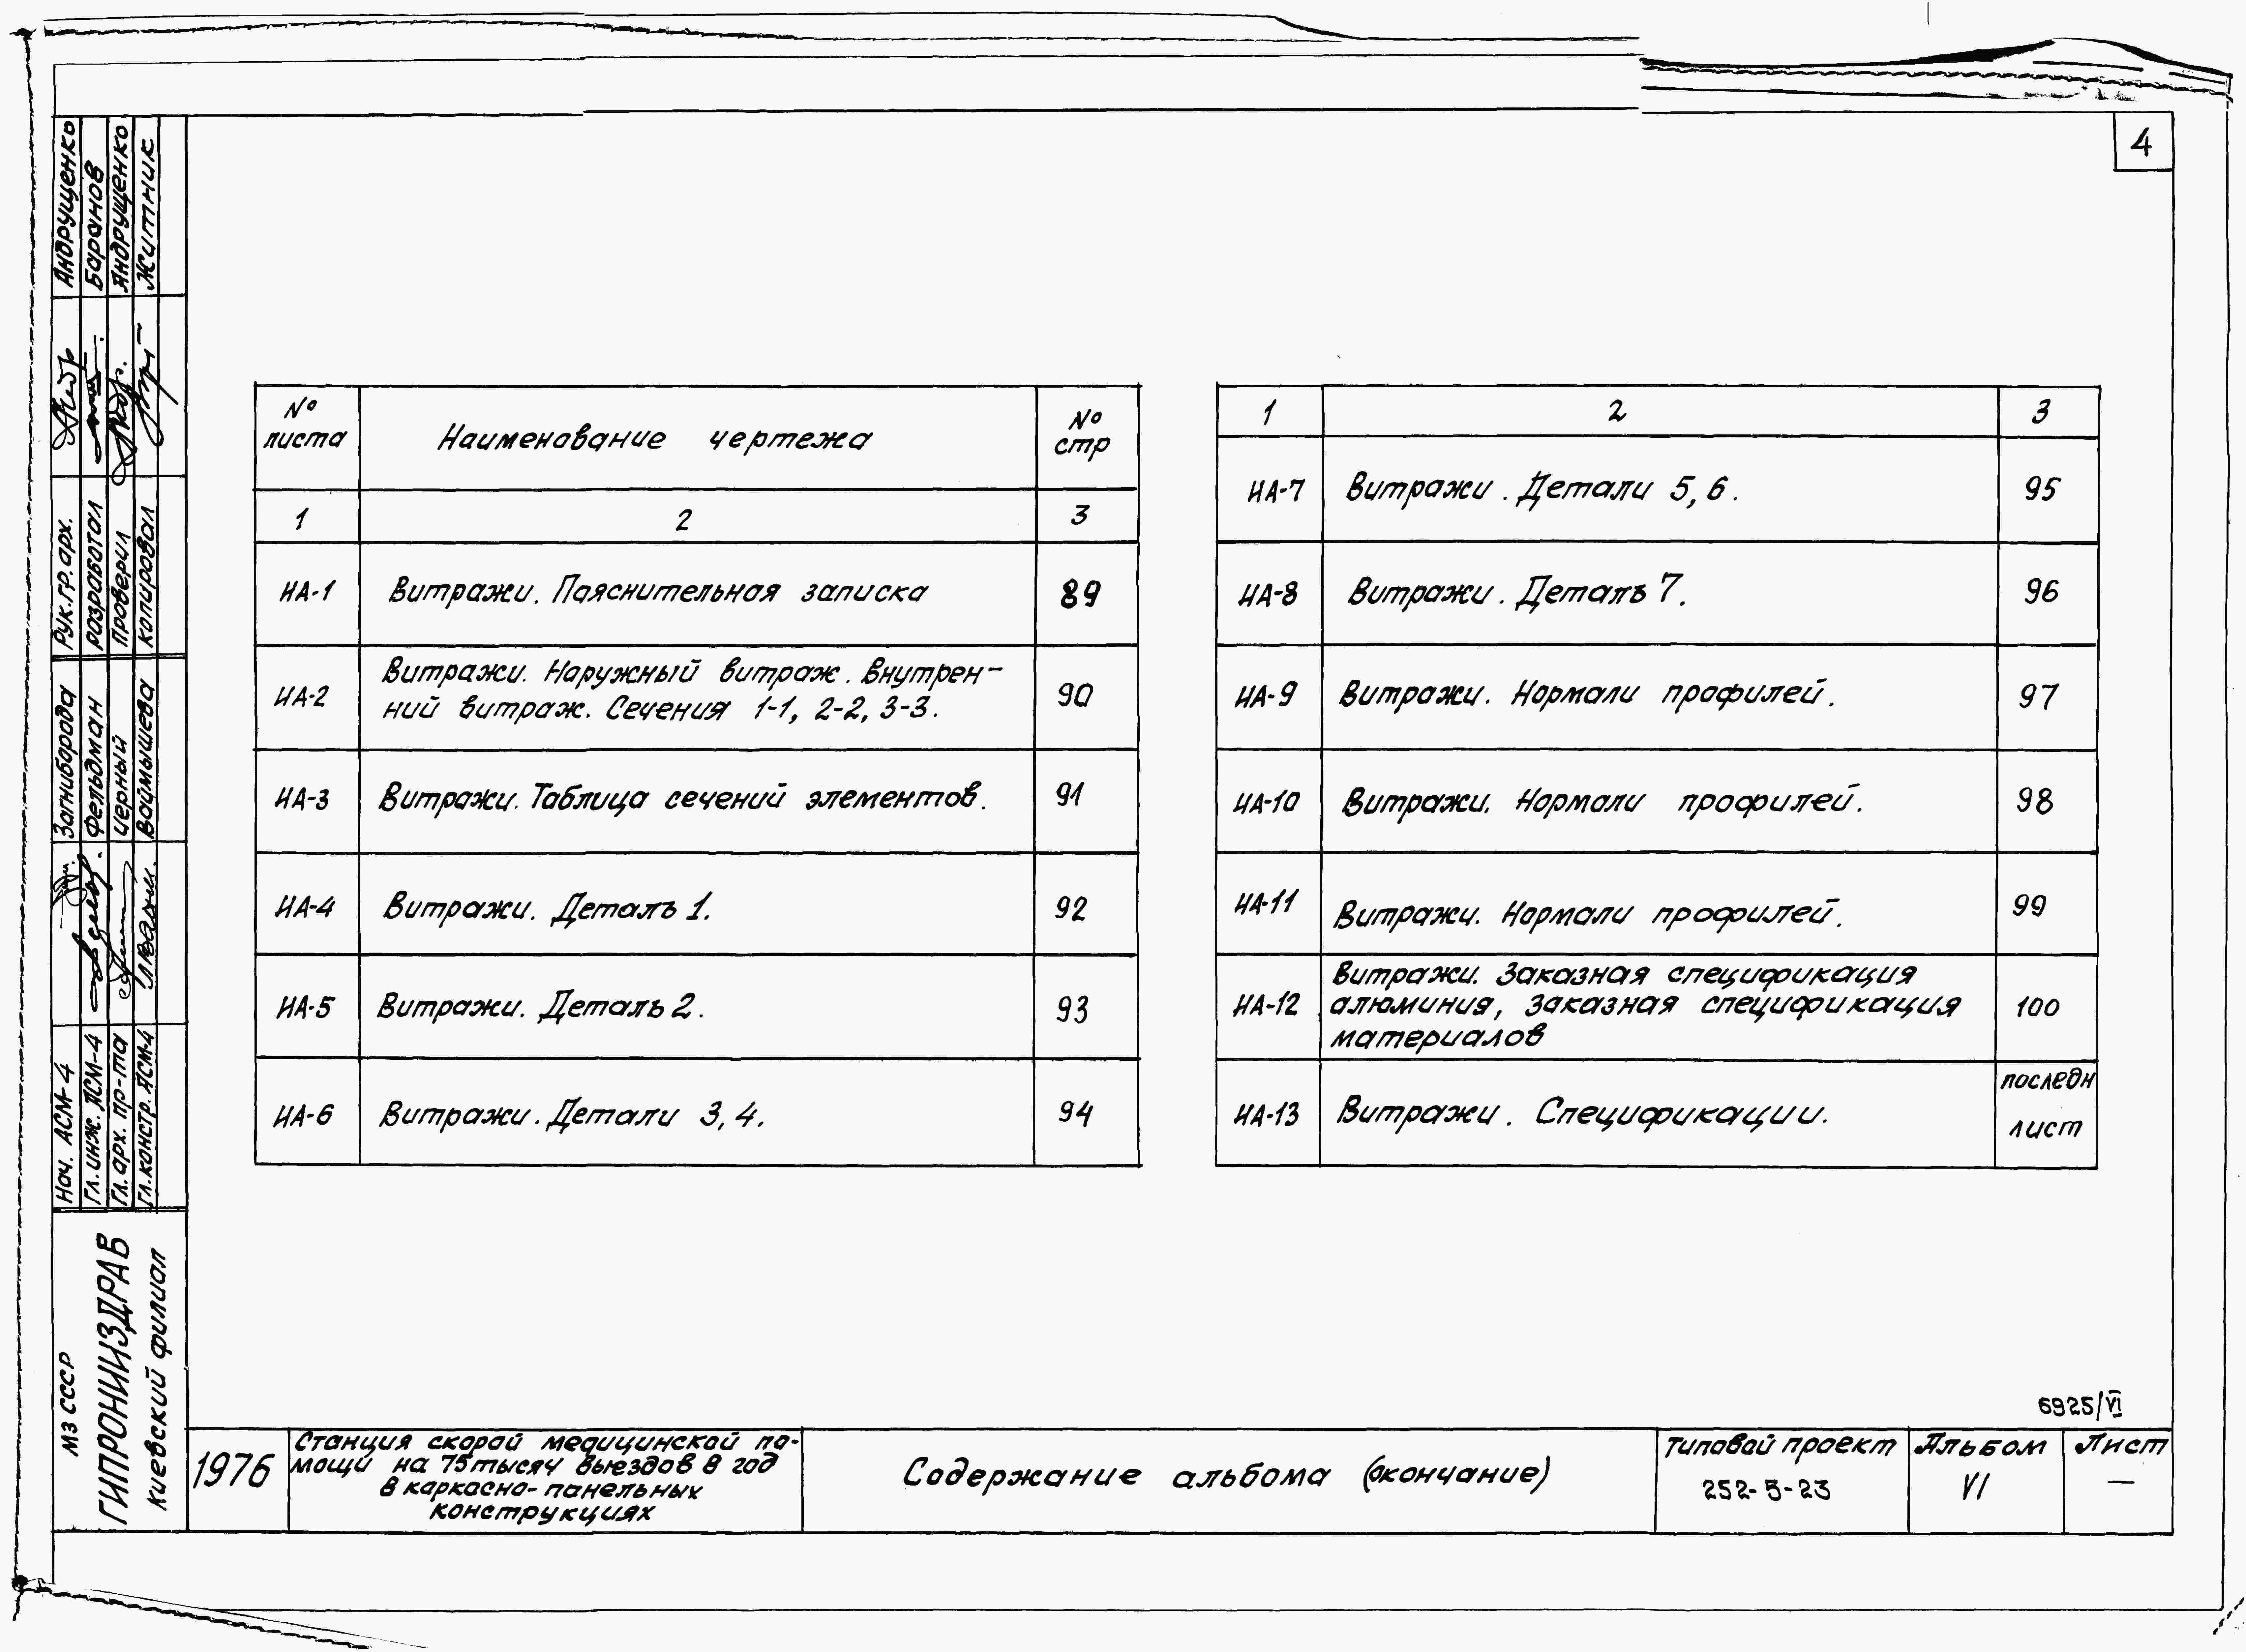 4
№ листа
Наименование чертежа
№ стр
1 2 3
ИА-1 Витражи. Пояснительная записка 89
ИА-2 Витражи. Наружный витраж. Внутрен-
ний витраж. Сечения 1-1, 2-2, 3-3. 90
ИА-3 Витражи. Таблица сечений элементов. 91
ИА-4 Витражи. Деталь 1. 92
ИА-5 Витражи. Деталь 2. 93
ИА-6 Витражи. Детали 3, 4. 94
1 2 3
ИА-7 Витражи. Детали 5, 6. 95
ИА-8 Витражи. Деталь 7. 96
ИА-9 Витражи. Нормали профилей. 97
ИА-10 Витражи. Нормали профилей. 98
ИА-11 Витражи. Нормали профилей. 99
ИА-12 Витражи. Заказная спецификация
алюминия, заказная спецификация
материалов 100
ИА-13 Витражи. Спецификации. последн
лист
МЗ СССР
ГИПРОНИИЗДРАВ
Киевский филиал
Нач. АСМ-4 Загниборода Рук.гр.арх. Андрущенко
Гл.инж. АСМ-4 Фельдман разработал Баранов
Гл.арх. пр-та Черный проверил Андрущенко
Гл.констр. АСМ-4 Ваймышева копировал Житник
6925/VI
1976
Станция скорой медицинской по-
мощи на 75 тысяч выездов в год
в каркасно-панельных
конструкциях
Содержание альбома (окончание)
Типовой проект
252-5-23
Альбом
VI
Лист
—